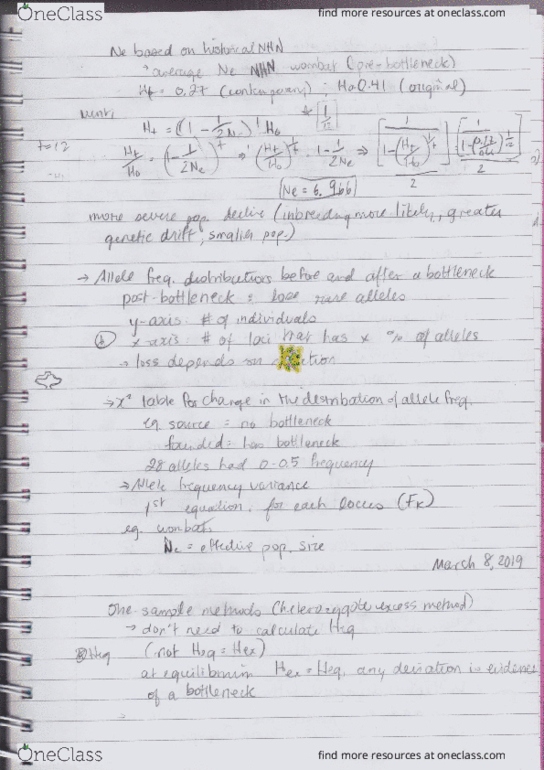 OneClass
find more resources at oneclass.com
Ne based on historical NHN
average Ne NHN wombat (pre-bottleneck)
Ht = 0.27 (contemporary) ; Ho 0.41 (original)
Ht = (1 - 1/2Ne)^t Ho
t=12
Ht/Ho = (1 - 1/2Ne)^t (Ht/Ho)^1/t 1 - 1/2Ne ⇒
Ne = 6.966
more severe pop. decline (inbreeding more likely, greater
genetic drift, smaller pop.)
→ Allele freq. distributions before and after a bottleneck
post-bottleneck = lose rare alleles
y-axis: # of individuals
x-axis: # of loci that has x % of alleles
→ loss depends on
→ x² table for change in the distribution of allele freq.
eg. source = no bottleneck
founded = has bottleneck
28 alleles had 0-0.5 frequency
→ Allele frequency variance
1st equation, for each locus (Fk)
eg. wombat
Ne = effective pop. size
March 8, 2019
One-sample methods (heterozygote excess method)
→ don't need to calculate Heq
Heq (not Heq = Hex)
at equilibrium Hex = Heq, any deviation is evidence
of a bottleneck
OneClass
find more resources at oneclass.com